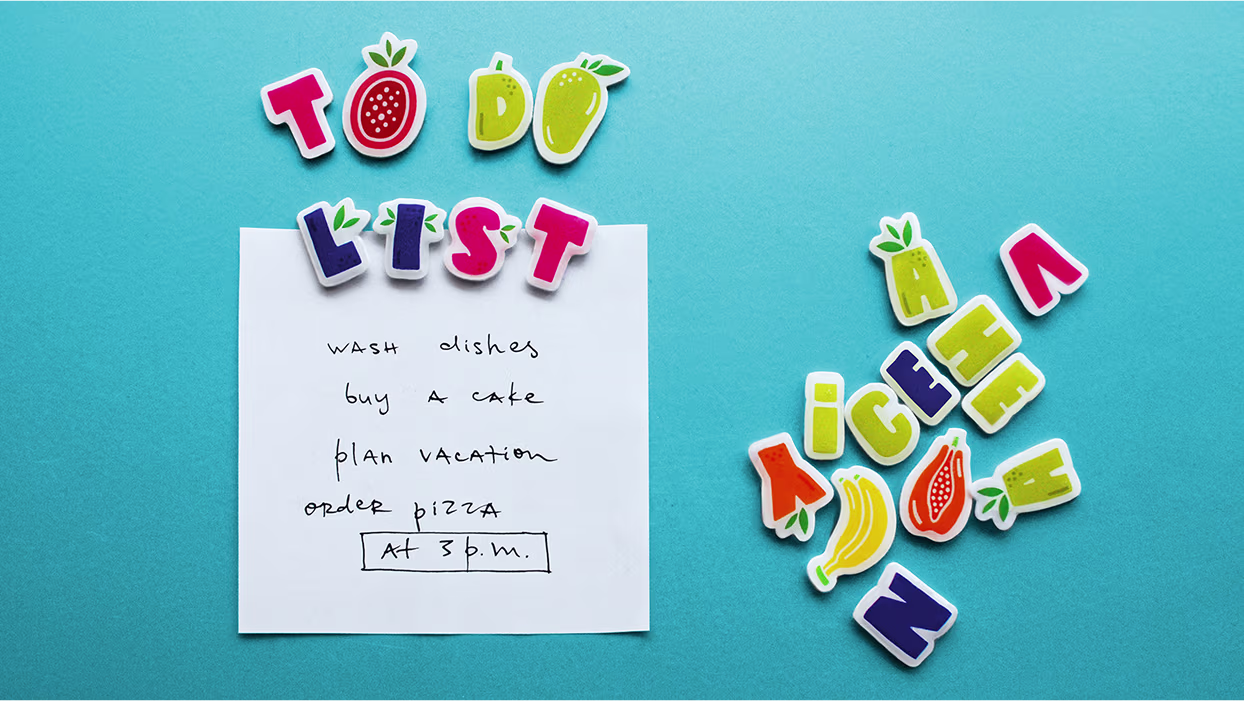 TO DO
LIST
WASH dishes
buy A cAke
plAn vAcAtion
ORDER pizzA
At 3 p.m.
A V
H
E
E
i C
A
A
N